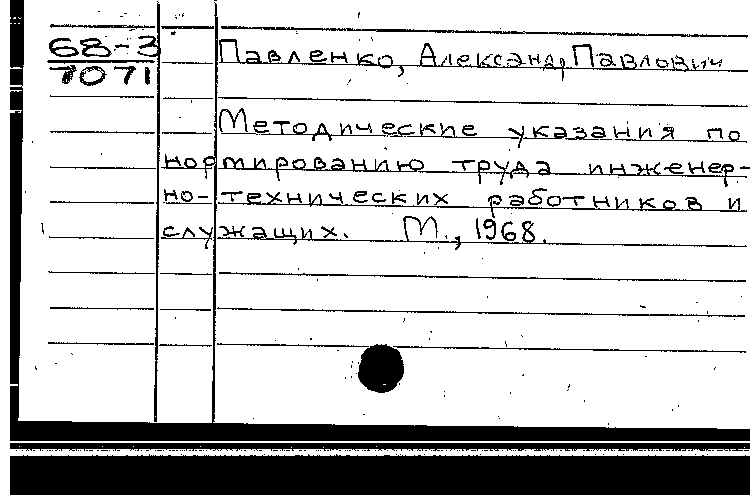 68-3
7071
Павленко, Александр Павлович
Методические указания по
нормированию труда инженер-
но-технических работников и
служащих. М., 1968.